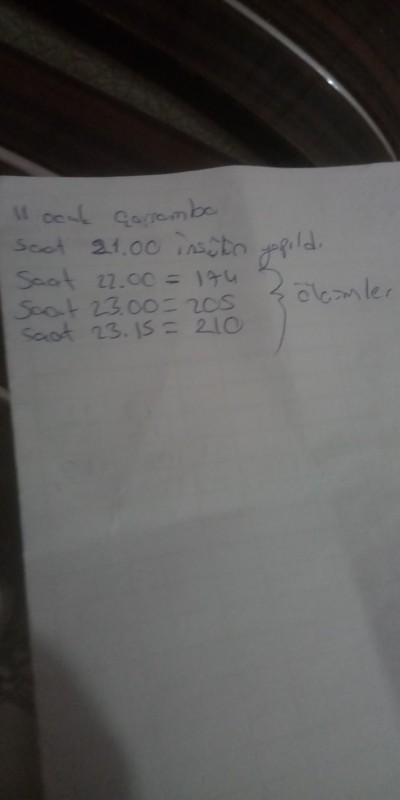 11 ocak Çarşamba
saat 21.00 insülin yapıldı.
Saat 22.00 = 174
Saat 23.00 = 205
saat 23.15 = 210
ölçümler